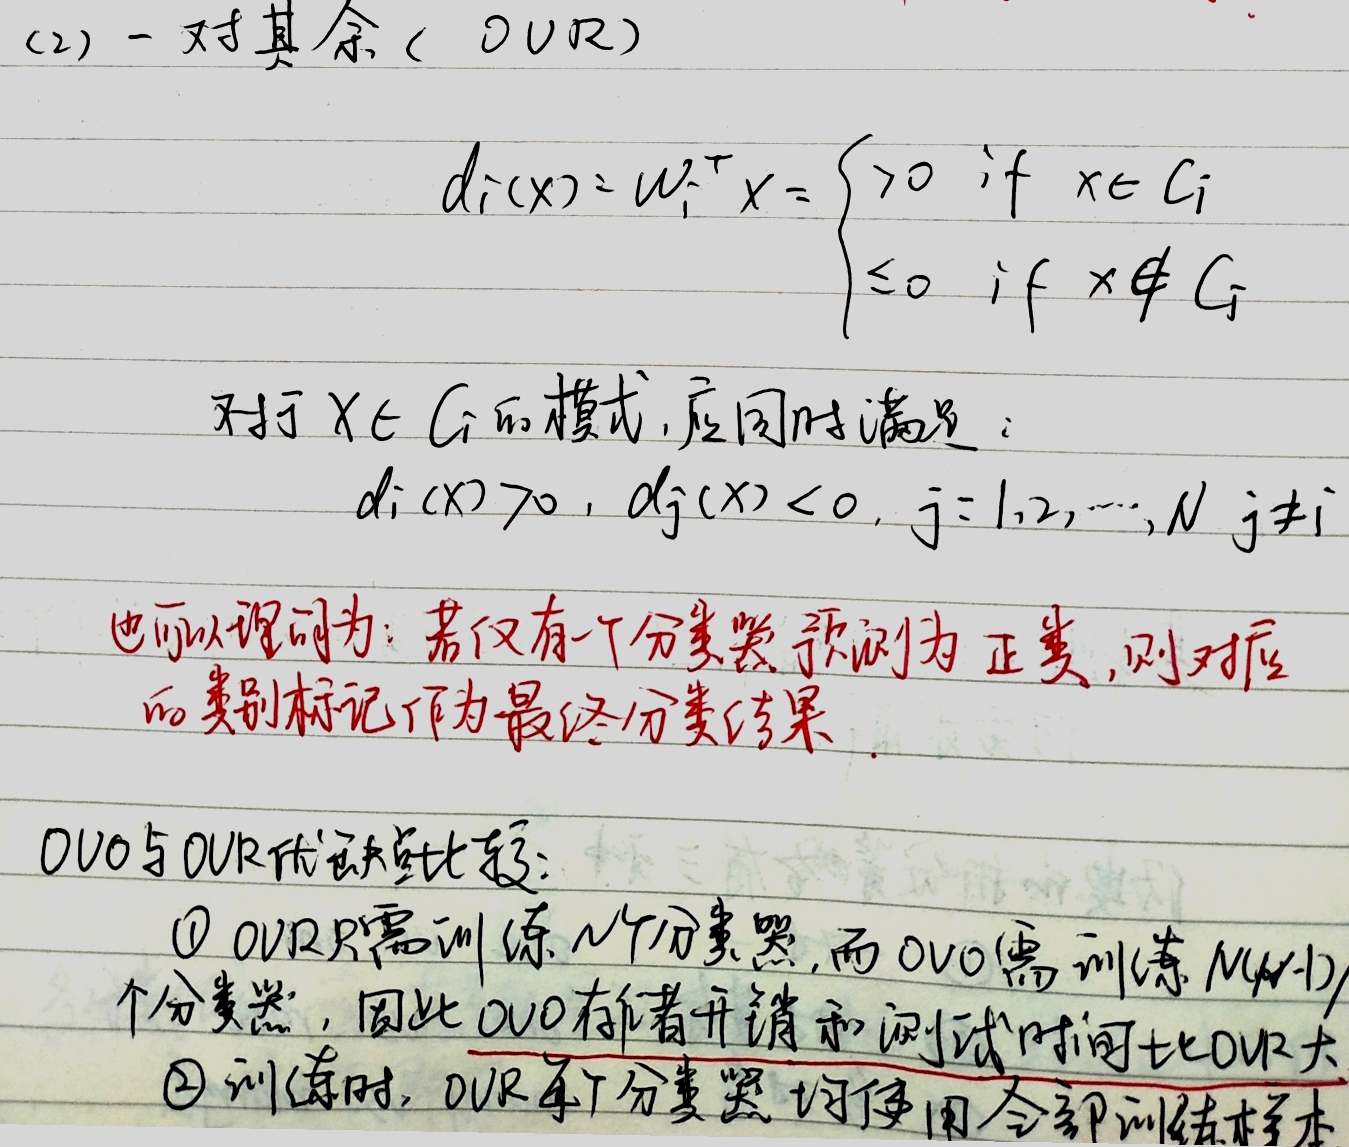 (2) 一对其余( OVR)
di(x) = wiᵀx = { >0 if x∈Ci
≤0 if x∉Ci
对于 X∈Ci的模式,应同时满足:
di(x)>0, dj(x)<0, j=1,2,…,N j≠i
也可以理解为:若仅有一个分类器预测为正类,则对应
的类别标记作为最终分类结果.
OVO与OVR优缺点比较:
① OVR只需训练N个分类器,而OVO需训练N(N-1)/
个分类器,因此OVO存储开销和测试时间比OVR大
② 训练时,OVR每个分类器均使用全部训练样本